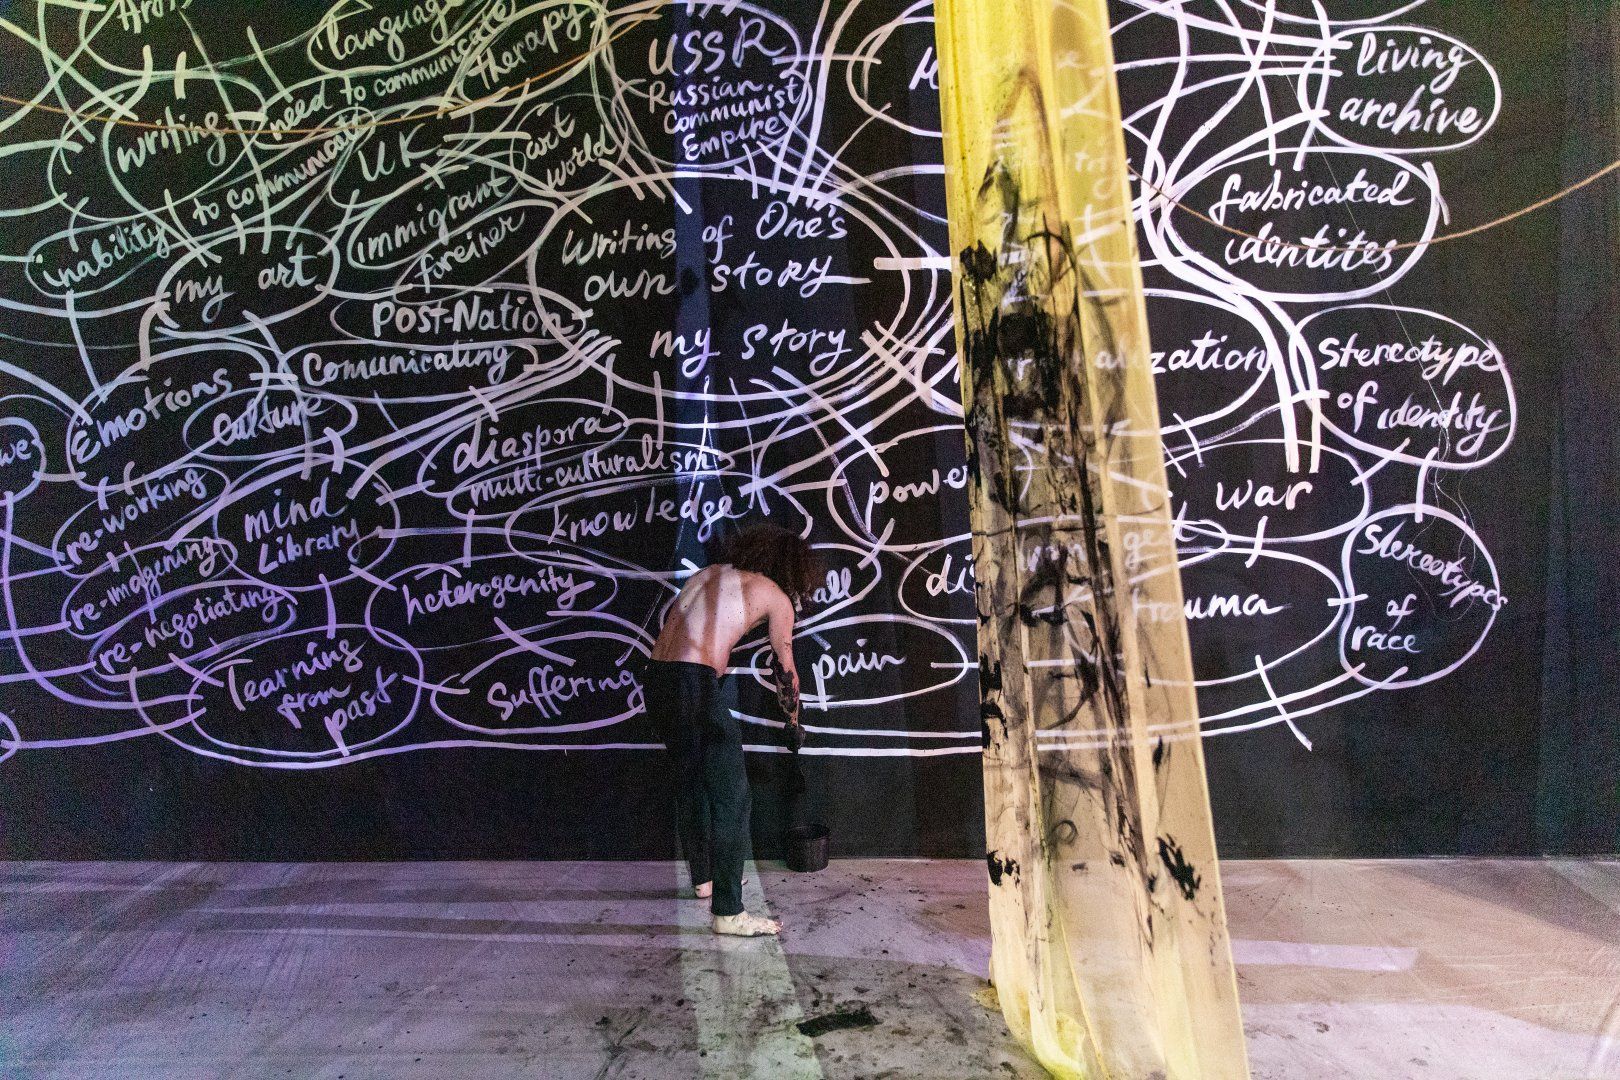 language
need to communicate
therapy
writing
inability
to communicate
UK
art
world
USSR
Russian
Communist
Empire
living
archive
my art
immigrant
foreiner
Writing of One's
own story
my story
fabricated
identites
Post-Nation
Comunicating
Emotions
culture
diaspora
multi-culturalism
knowledge
stereotype
of identity
re-working
re-imagening
re-negotiating
mind
Library
heterogenity
war
stereotypes
of
race
learning
from
past
suffering
pain